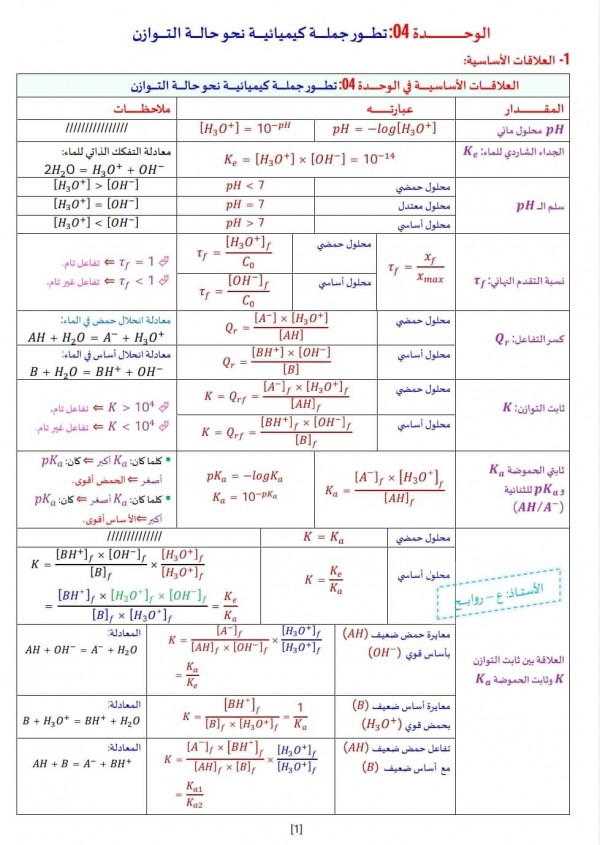 الوحـــدة 04: تطـور جملـة كيميائيـة نحو حالـة التـوازن
1- العلاقات الأساسية:
العلاقات الأساسيـة في الوحدة 04: تطـور جملـة كيميائيـة نحو حالـة التـوازن
المقـدار عبارتـه ملاحظـات
pH محلول مائي pH = −log[H₃O⁺] [H₃O⁺] = 10^−pH ////////////////
الجداء الشاردي للماء: Kₑ Kₑ = [H₃O⁺] × [OH⁻] = 10⁻¹⁴ معادلة التفكك الذاتي للماء:
2H₂O = H₃O⁺ + OH⁻
سلم الـ pH
محلول حمضي pH < 7 [H₃O⁺] > [OH⁻]
محلول معتدل pH = 7 [H₃O⁺] = [OH⁻]
محلول أساسي pH > 7 [H₃O⁺] < [OH⁻]
نسبة التقدم النهائي: τ_f τ_f = x_f / x_max
محلول حمضي τ_f = [H₃O⁺]_f / C₀
محلول أساسي τ_f = [OH⁻]_f / C₀
τ_f = 1 ⇐ تفاعل تام.
τ_f < 1 ⇐ تفاعل غير تام.
كسر التفاعل: Q_r
محلول حمضي Q_r = [A⁻] × [H₃O⁺] / [AH]
معادلة انحلال حمض في الماء:
AH + H₂O = A⁻ + H₃O⁺
محلول أساسي Q_r = [BH⁺] × [OH⁻] / [B]
معادلة انحلال أساس في الماء:
B + H₂O = BH⁺ + OH⁻
ثابت التوازن: K
محلول حمضي K = Q_rf = [A⁻]_f × [H₃O⁺]_f / [AH]_f
محلول أساسي K = Q_rf = [BH⁺]_f × [OH⁻]_f / [B]_f
K > 10⁴ ⇐ تفاعل تام.
K < 10⁴ ⇐ تفاعل غير تام.
ثابتي الحموضة Kₐ
و pKₐ للثنائية
(AH/A⁻)
Kₐ = [A⁻]_f × [H₃O⁺]_f / [AH]_f
pKₐ = −logKₐ
Kₐ = 10^−pKₐ
▪ كلما كان: Kₐ أكبر ⇐ كان: pKₐ
أصغر ⇐ الحمض أقوى.
▪ كلما كان: Kₐ أصغر ⇐ كان: pKₐ
أكبر ⇐ الأساس أقوى.
العلاقة بين ثابت التوازن
K وثابت الحموضة Kₐ
الأستاذ: ع – روابـح
محلول حمضي K = Kₐ //////////////
محلول أساسي K = Kₑ / Kₐ
K = [BH⁺]_f × [OH⁻]_f / [B]_f × [H₃O⁺]_f / [H₃O⁺]_f
= [BH⁺]_f × [H₃O⁺]_f × [OH⁻]_f / [B]_f × [H₃O⁺]_f = Kₑ / Kₐ
معايرة حمض ضعيف (AH)
بأساس قوي (OH⁻)
K = [A⁻]_f / [AH]_f × [OH⁻]_f × [H₃O⁺]_f / [H₃O⁺]_f
= Kₐ / Kₑ
المعادلة:
AH + OH⁻ = A⁻ + H₂O
معايرة أساس ضعيف (B)
بحمض قوي (H₃O⁺)
K = [BH⁺]_f / [B]_f × [H₃O⁺]_f = 1 / Kₐ
المعادلة:
B + H₃O⁺ = BH⁺ + H₂O
تفاعل حمض ضعيف (AH)
مع أساس ضعيف (B)
K = [A⁻]_f × [BH⁺]_f / [AH]_f × [B]_f × [H₃O⁺]_f / [H₃O⁺]_f
= Kₐ₁ / Kₐ₂
المعادلة:
AH + B = A⁻ + BH⁺
[1]